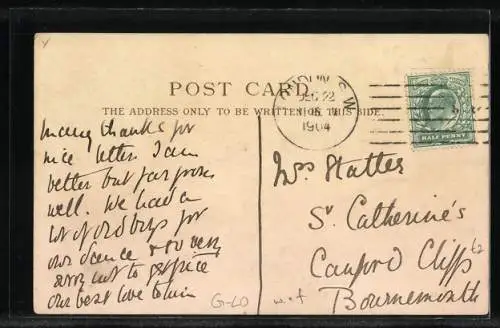 POST CARD.
THE ADDRESS ONLY TO BE WRITTEN ON THIS SIDE.
LONDON S.W
DEC 22
1904
HALF PENNY
many thanks for
nice letter. I am
better but far from
well. We had a
lot of old boys for
our dance & so very
sorry not to get
our best love to him
Mrs Statter
St Catherine's
Canford Cliffs
Bournemouth
G-20
w.f